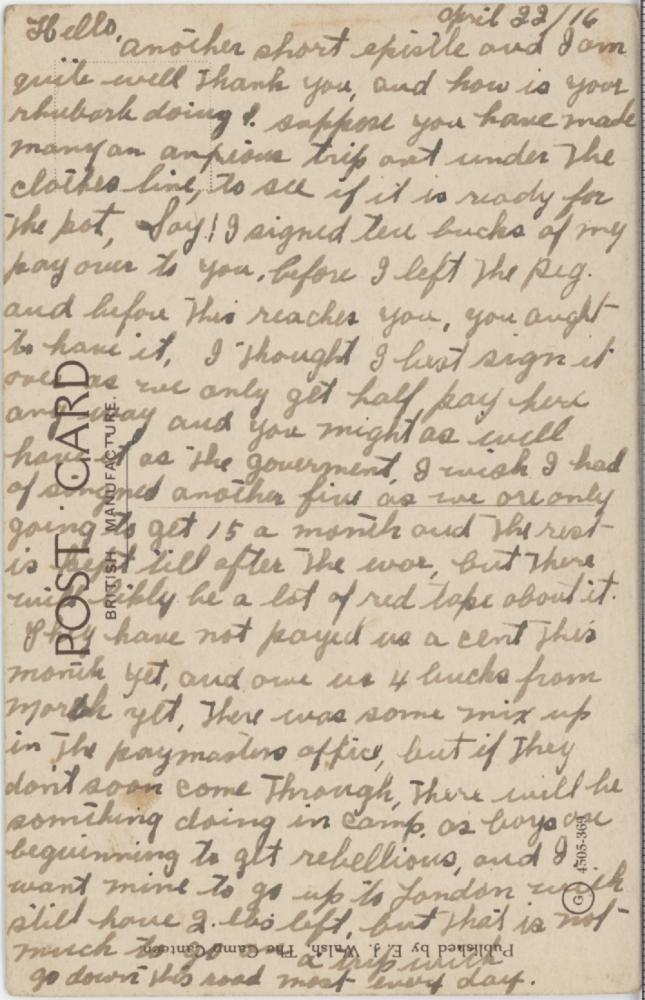 April 22/16
Hello,
another short epistle and I am
quite well Thank you, and how is your
rhubarb doing I suppose you have made
many an anxious trip out under the
clothes line, to see if it is ready for
the pot, Say! I signed ten bucks of my
pay over to you, before I left the Peg.
and before this reaches you, you aught
to have it, I thought I best sign it
over as we only get half pay here
anyway and you might as well
have it as the goverment, I wish I had
of singned another five as we are only
going to get 15 a month and the rest
is kept till after the war, but there
will be a lot of red tape about it.
They have not payed us a cent this
month yet, and owe us 4 bucks from
March yet, There was some mix up
in the paymasters office, but if they
don't soon come Through, There will be
something doing in camp. as boys are
beguinning to get rebellious, and I
want mine to go up to London with
still have 2. lbs left, but that is not
much to go a trip with
go down this road most every day.
POST CARD
BRITISH MANUFACTURE.
G. 4505-369
Published by E. J. Walsh, The Camp Canteen